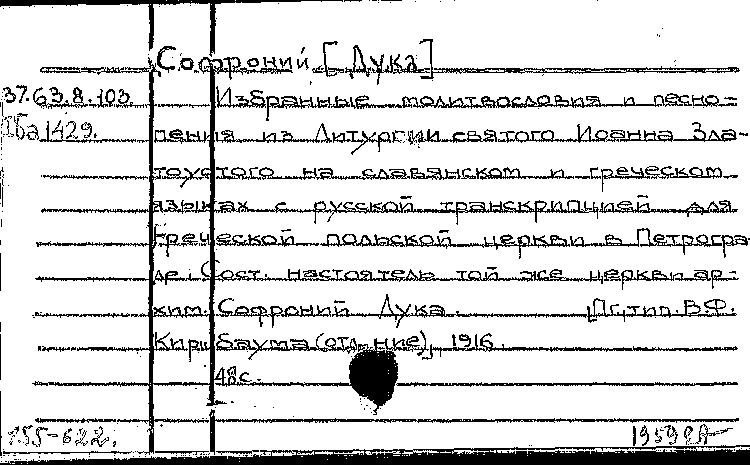 Софроний [Дука]
37.63.8.103. Избранные молитвословия и песно-
Iба1429. пения из Литургии святого Иоанна Зла-
тоустого на славянском и греческом
языках с русской транскрипцией для
Греческой польской церкви в Петрогра-
де. Сост. настоятель той же церкви ар-
хим. Софроний Дука. Пг, тип. В.Ф.
Кирш баума (отд-ние), 1916.
48с.
155-622.